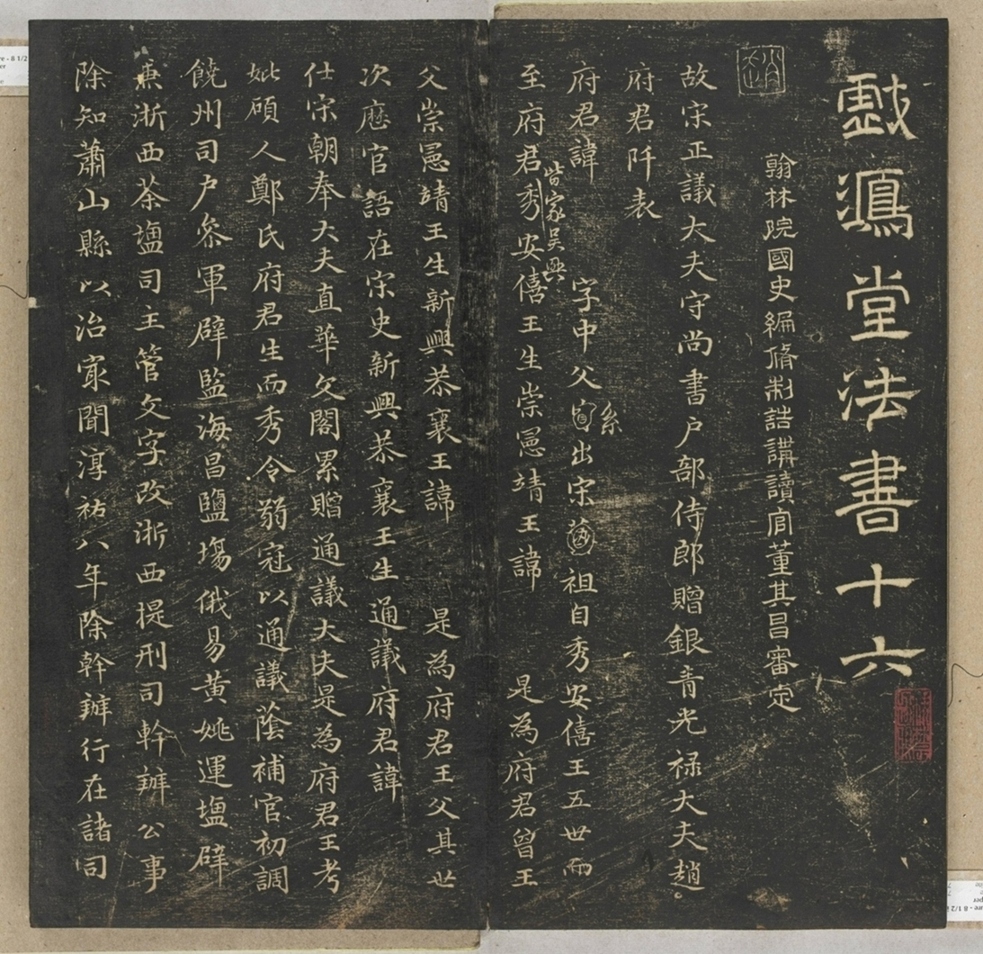 戲鴻堂法書十六
翰林院國史編脩制誥講讀官董其昌審定
故宋正議大夫守尚書户部侍郎贈銀青光禄大夫趙
府君阡表
府君諱 字中父 系出宋 祖自秀安僖王五世而
皆家吴興
至府君秀安僖王生崇憲靖王諱 是為府君曾王
父崇憲靖王生新興恭襄王諱 是為府君王父其世
次歷官語在宋史新興恭襄王生通議府君諱
仕宋朝奉大夫直華文閣累贈通議大夫是為府君王考
妣碩人鄭氏府君生而秀令弱冠以通議蔭補官初調
饒州司户叅軍辟監海昌鹽塲俄易黄姚運塩辟
兼浙西茶塩司主管文字改浙西提刑司幹辦公事
除知蕭山縣以治㝡聞淳祐八年除幹辦行在諸司